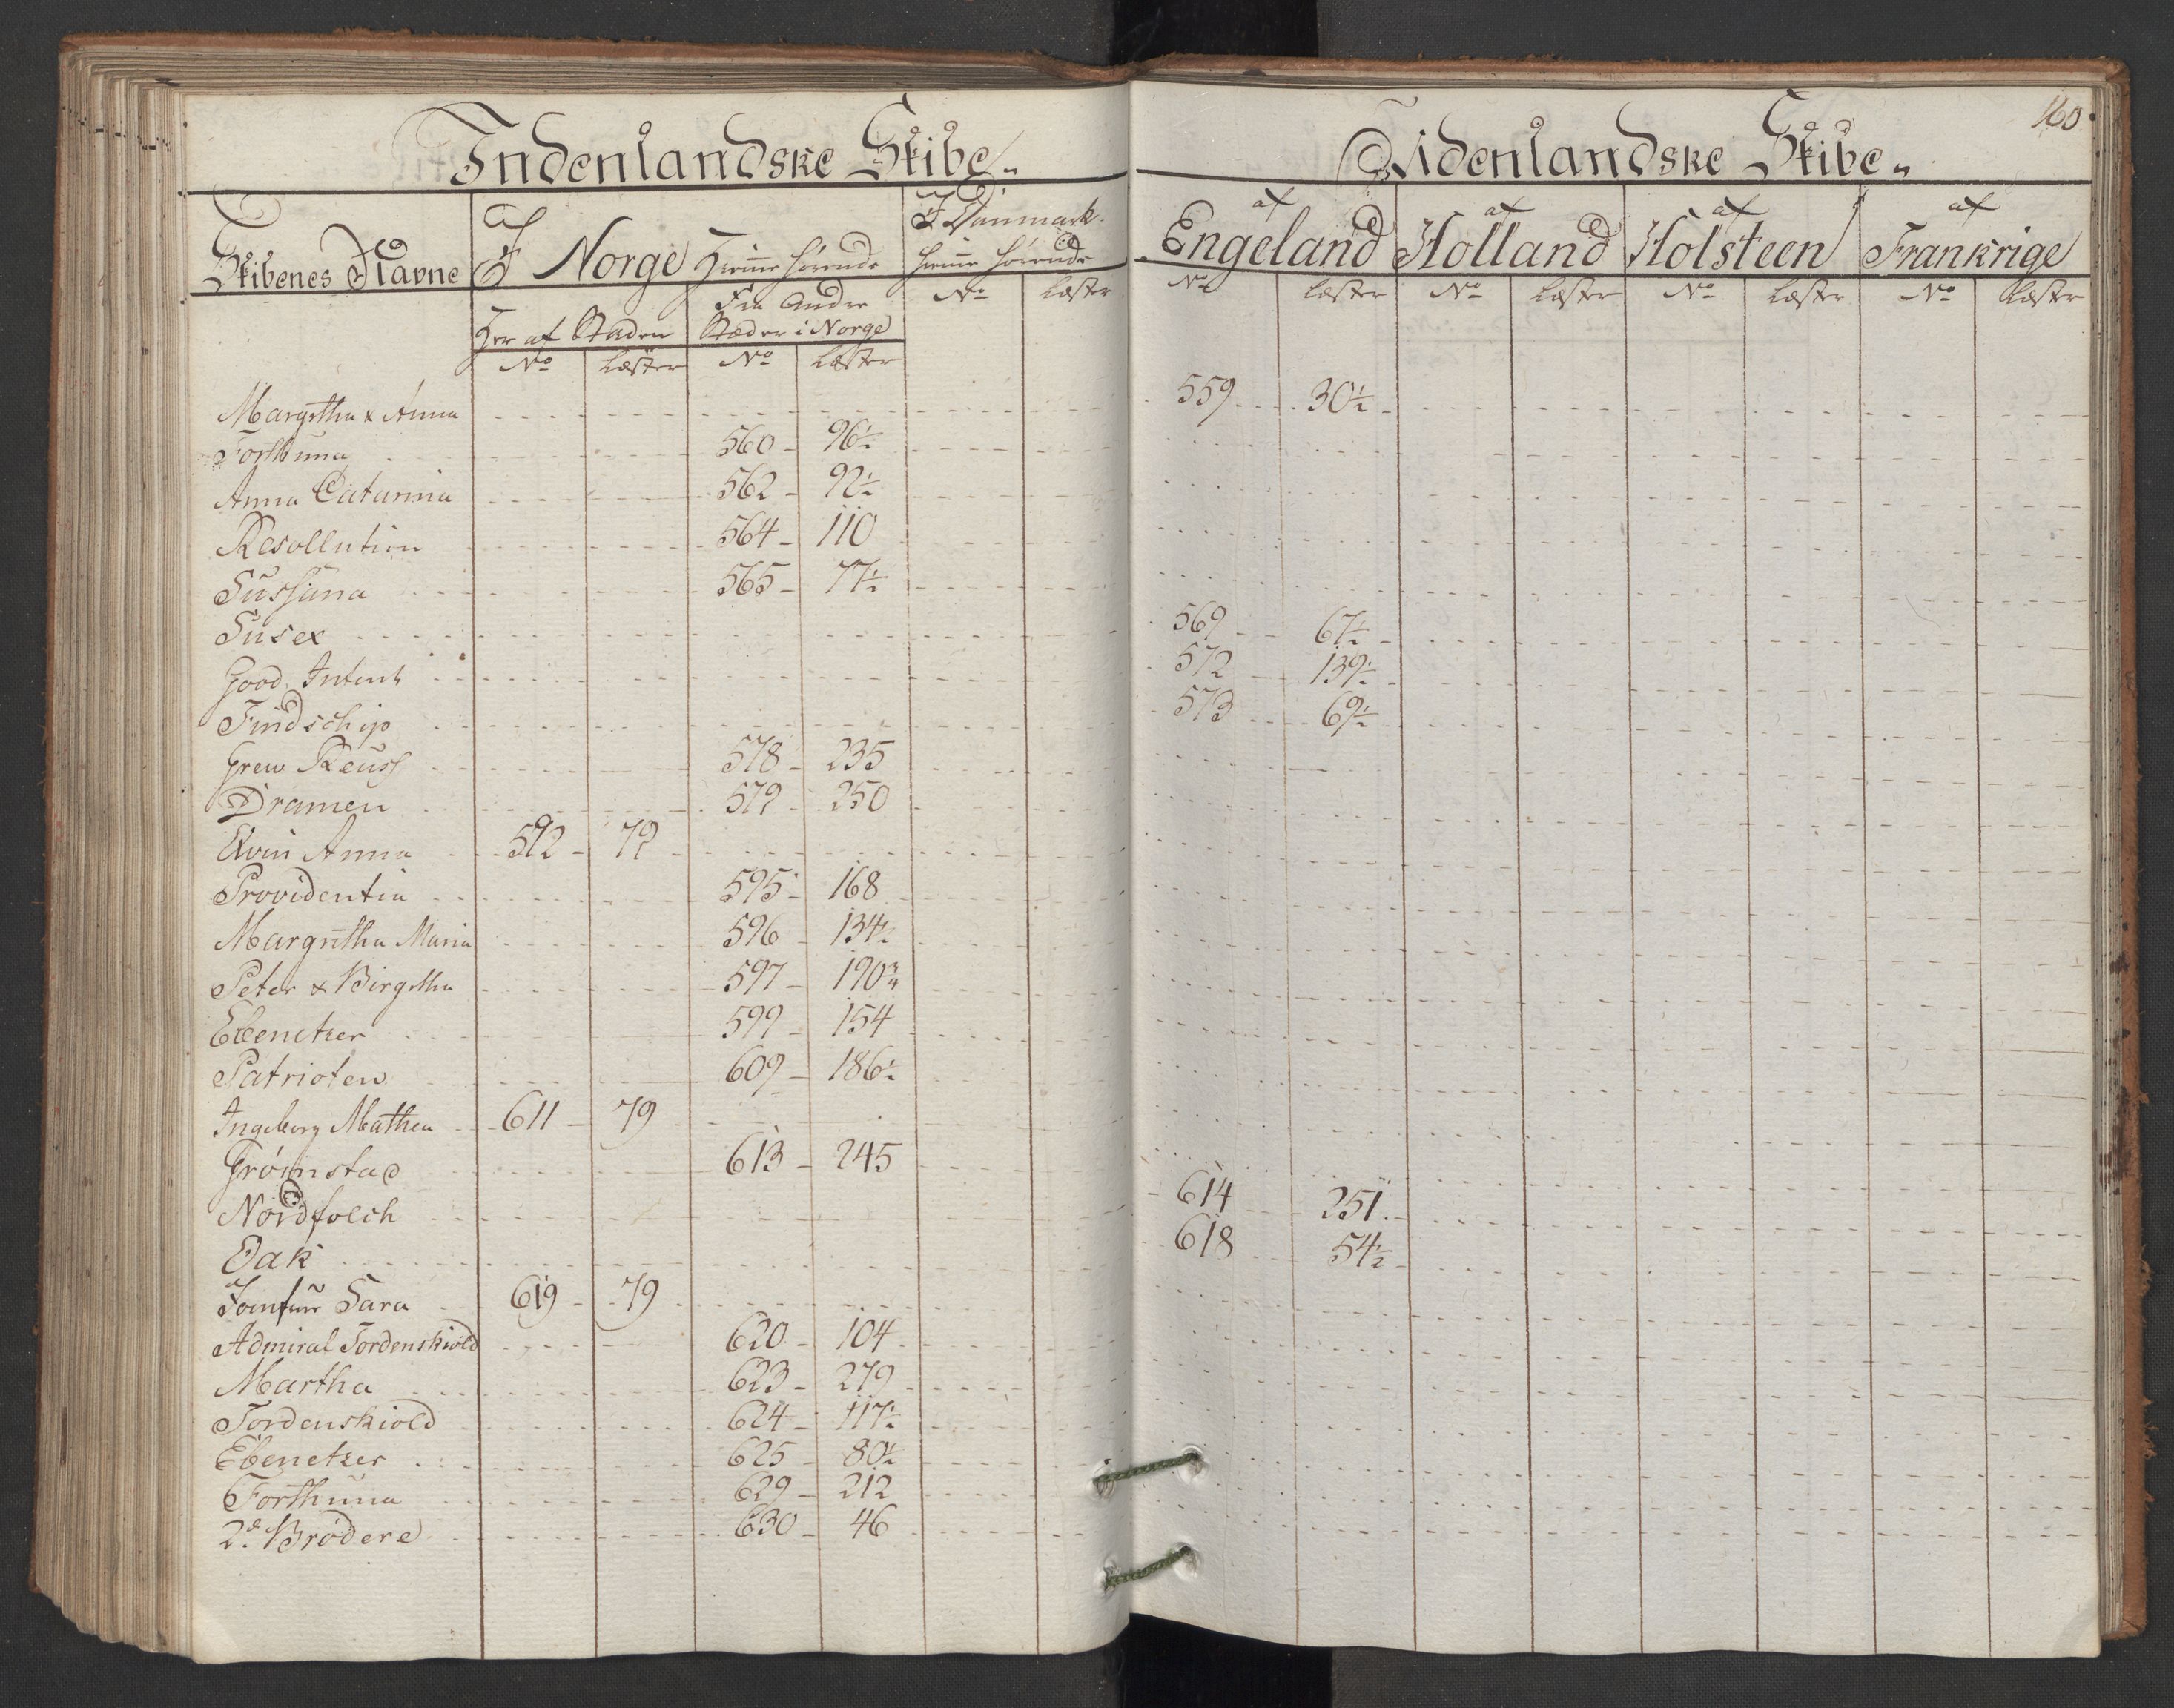 Indenlandske Skibe
Skibenes Navne
af
I Norge Hiemme hørende
I Danmark
Hiemme hørende
Her af Staden
Fra Andre
Stæder i Norge
No Læster No Læster No Læster
Margretha & Anna
Forthuna 560 96 1/2
Anna Catarina 562 92 1/2
Resollution 564 110
Sussana 565 77 1/2
Susex
Good Intent
Findschip
Grew Reuss 578 235
Dramen 579 250
Anna 592 79
Providentia 595 168
Margretha Maria 596 134 1/2
Peter & Birgetha 597 190 3/4
Ebenetzer 599 154
Patrioten 609 186 1/2
Ingeborg Mathea 611 79
Grømstad 613 245
Nordfolch
Oak
Jomfrue Sara 619 79
Admiral Tordenskiold 620 104
Martha 623 279
Tordenskiold 624 117 1/2
Ebenetzer 625 80 1/2
Forthuna 629 212
2de Brødere 630 46
160
Udenlandske Skibe
af Engeland af Holland af Holsteen af Frankrige
No Læster No Læster No Læster No Læster
559 30 1/2
569 67 1/2
572 139 1/2
573 69 1/2
614 251
618 54 1/2